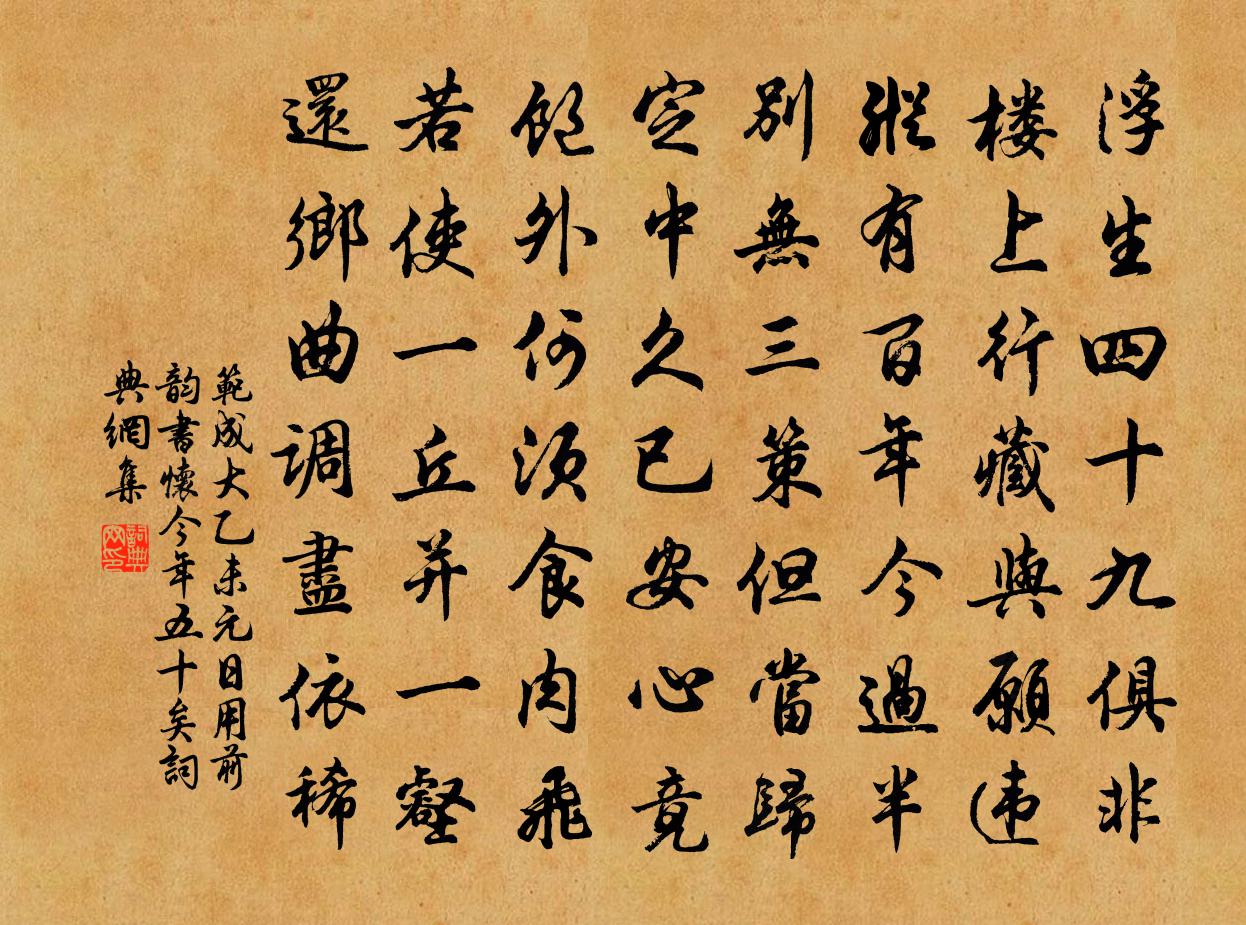 浮生四十九俱非
楼上行藏與願违
縱有百年今過半
別無三策但當歸
定中久已安心竟
飽外何须食肉飛
若使一丘并一壑
還鄉曲调盡依稀
範成大乙未元日用前
韵書懷今年五十矣詞
典網集
詞典
网印